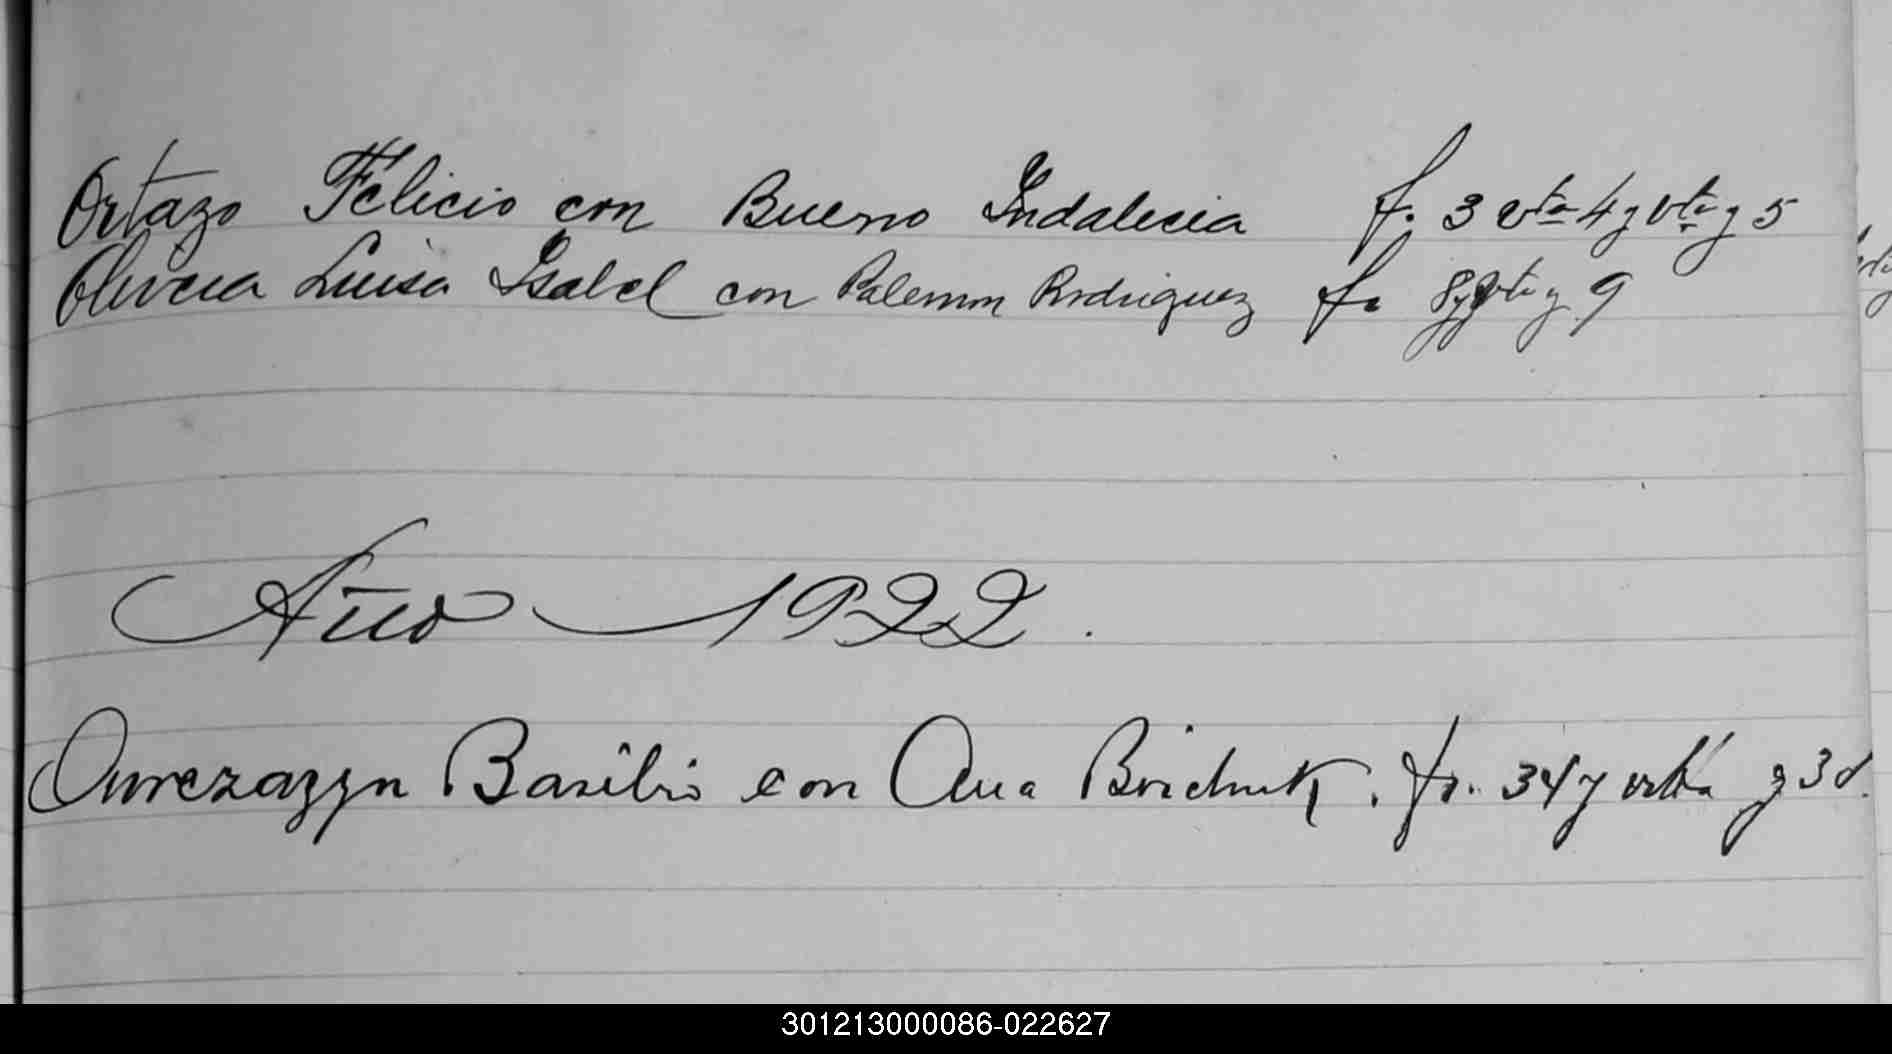 Ortazo Felicio con Bueno Indalecia f. 3 vta 4 y vta y 5
Olivera Luisa Isabel con Palemon Rodriguez fs 8 y vta y 9
Año 1922.
Basilio con Ana fs. 34 y vta y 3
301213000086-022627